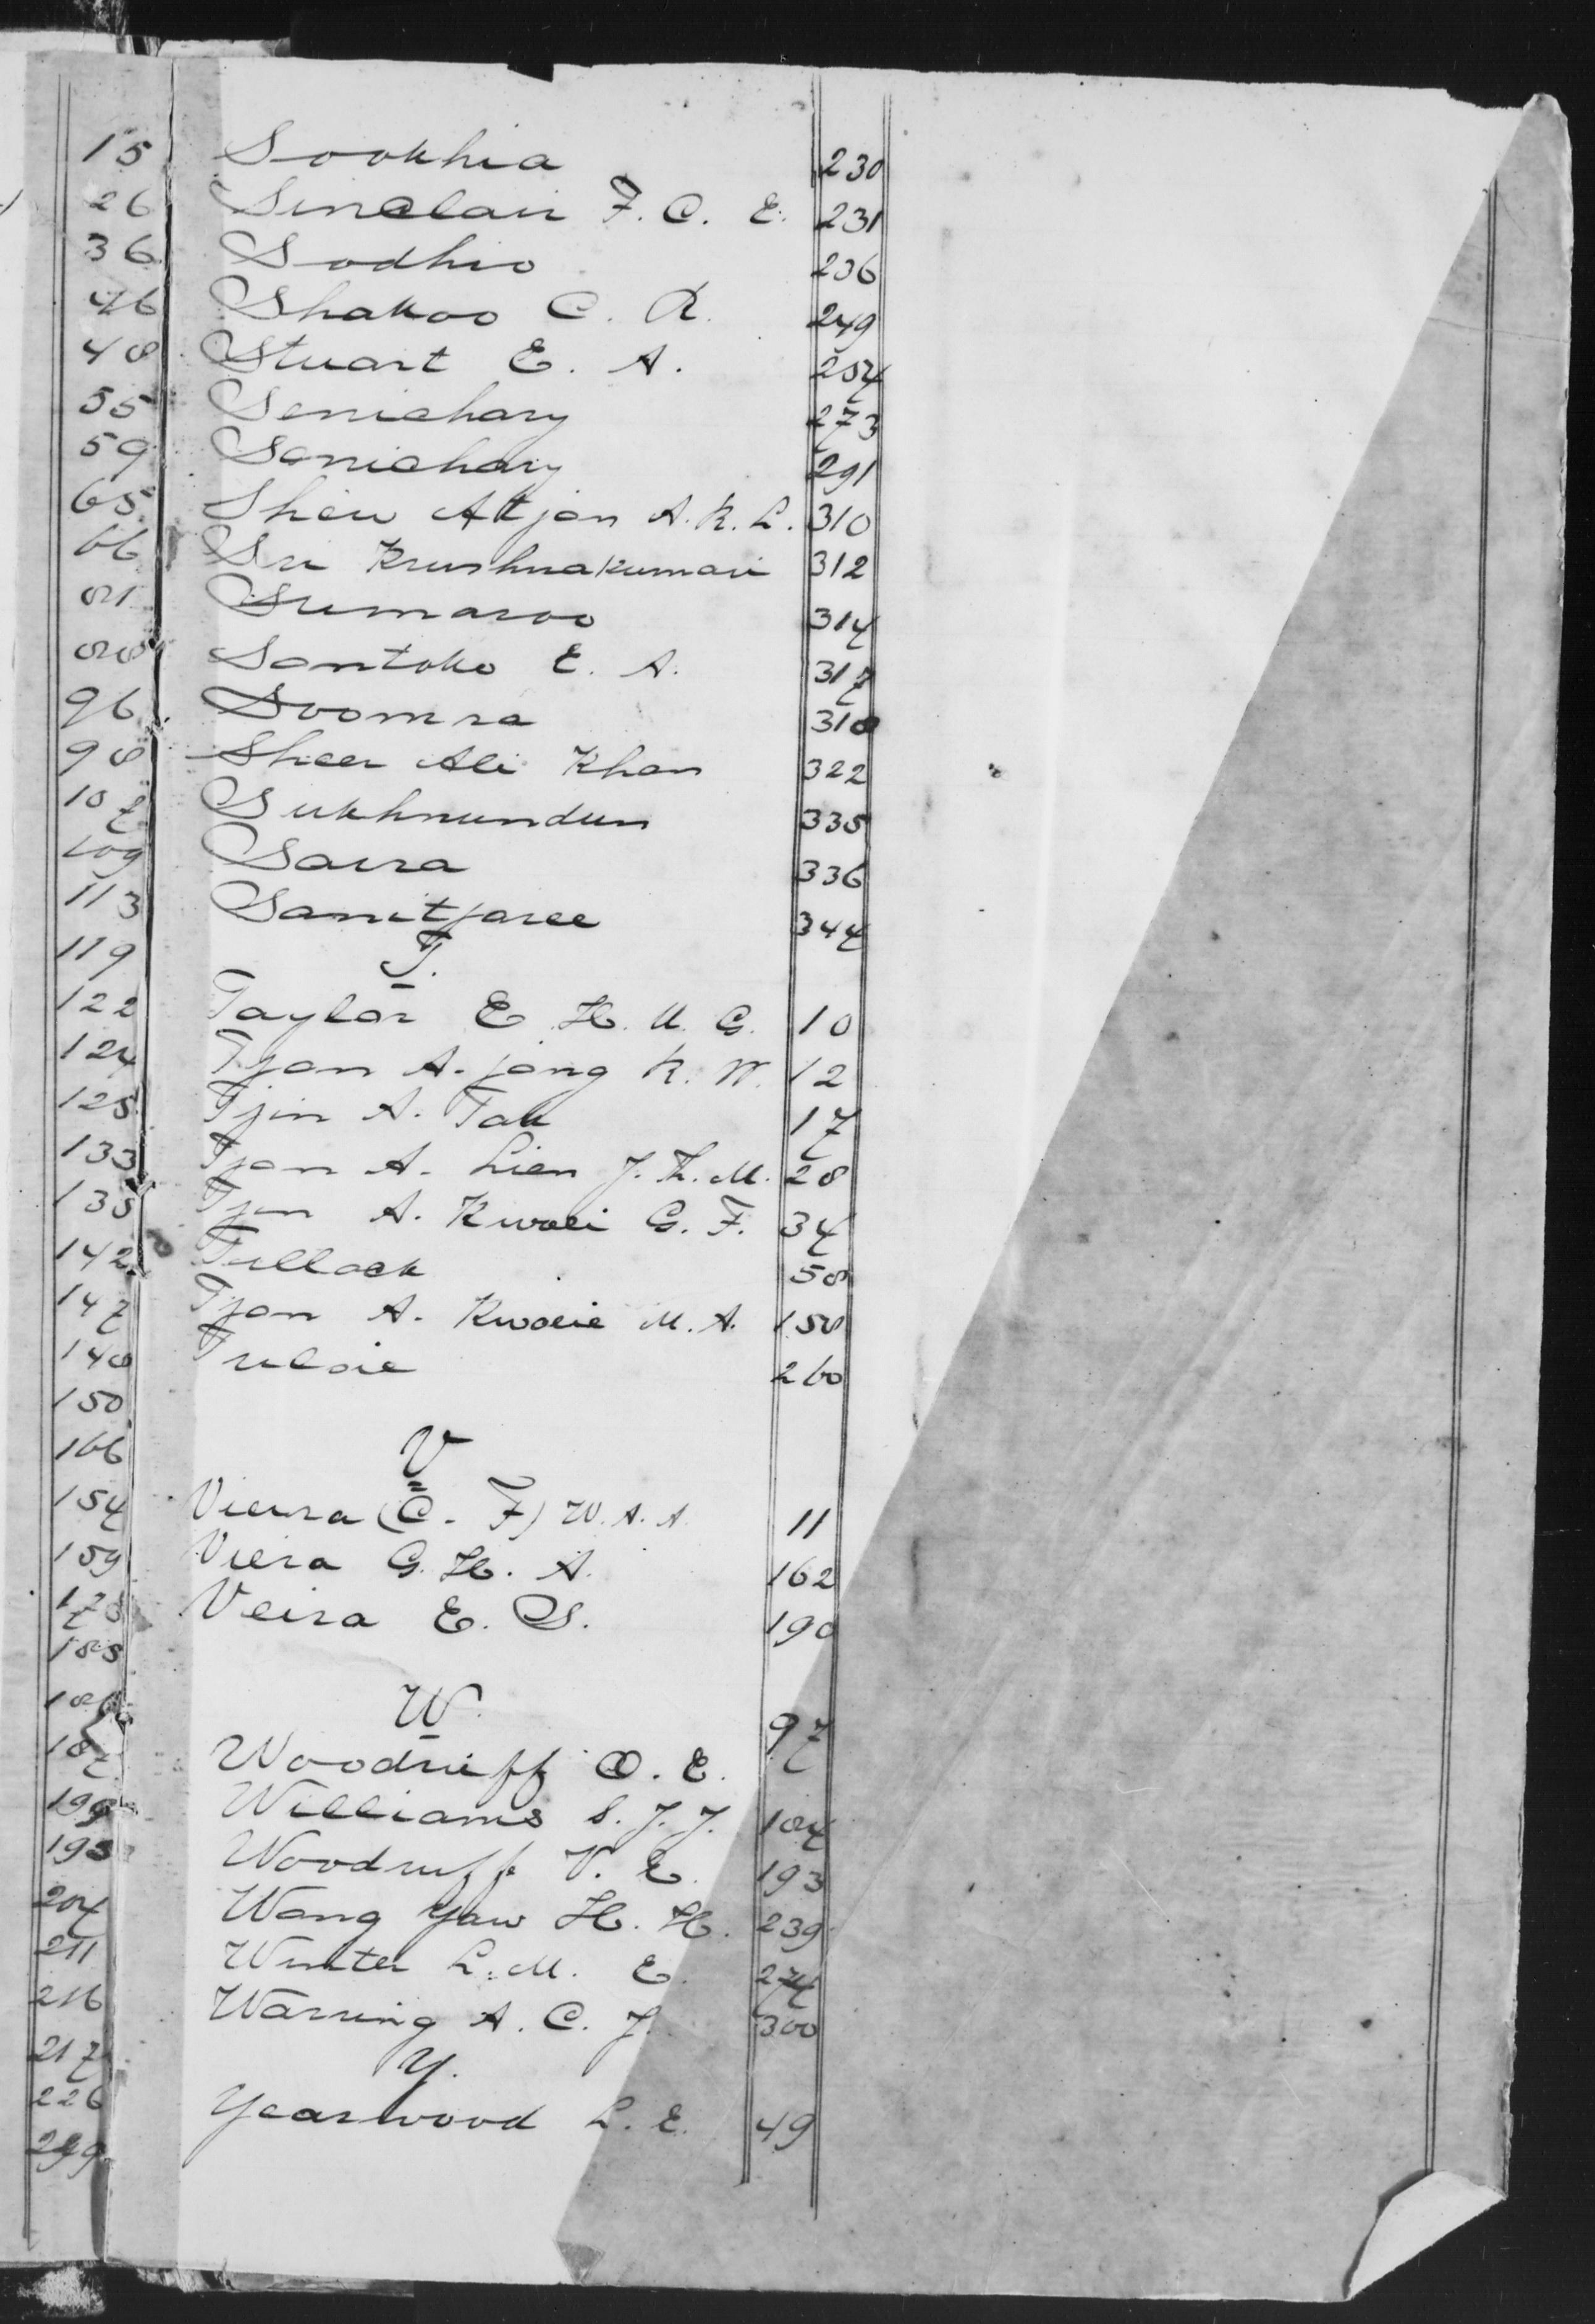 15
26
36
46
48
55
59
65
66
81
88
96
98
107
109
113
119
122
124
125
133
135
142
147
148
150
166
154
159
178
185
186
187
199
195
204
211
216
217
226
249
Sookhia 230
Sinclair F. C. E. 231
Sodhio 236
Shakoo C. R. 249
Stuart E. A. 254
Senichary 273
Sanichary 291
Shew Atjon A. R. L. 310
Sri Krushnakumari 312
Sumaroo 314
Santoko E. A. 317
Soomra 318
Sheer Ali Khan 322
Sukhnundun 335
Saira 336
Sanitjaree 344
T.
Taylor E. H. U. G. 10
Tjon A. jong R. W. 12
Tjin A. Tak 17
Tjon A. Lien J. L. M. 28
Tjon A. Kwoei G. F. 34
Tullock 58
Tjon A. Kwoeie M. A. 158
Tulsie 260
V
Vieira (C. F) W. A. A. 11
Viera G. H. A. 162
Veira E. S. 190
W.
Woodruff O. E. 97
Williams S. J. J. 104
Woodruff V. E. 193
Wong Yaw H. H. 239
Winter L. M. E. 274
Warning A. C. J. 300
Y.
Yearwood L. E. 49